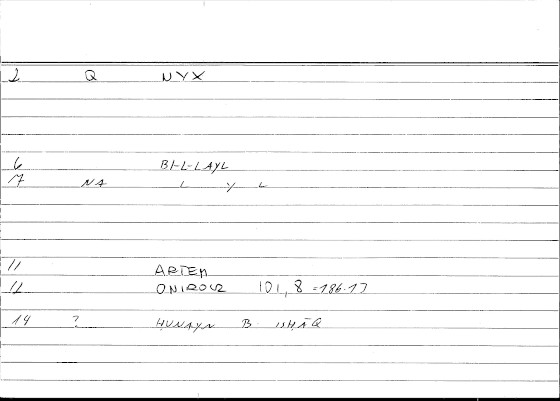 2 Q NYX
6 BI-L-LAYL
7 NA L Y L
11 ARTEM
12 ONIROCR 101, 8 = 186.17
14 ? ḤUNAYN B. ISḤĀQ